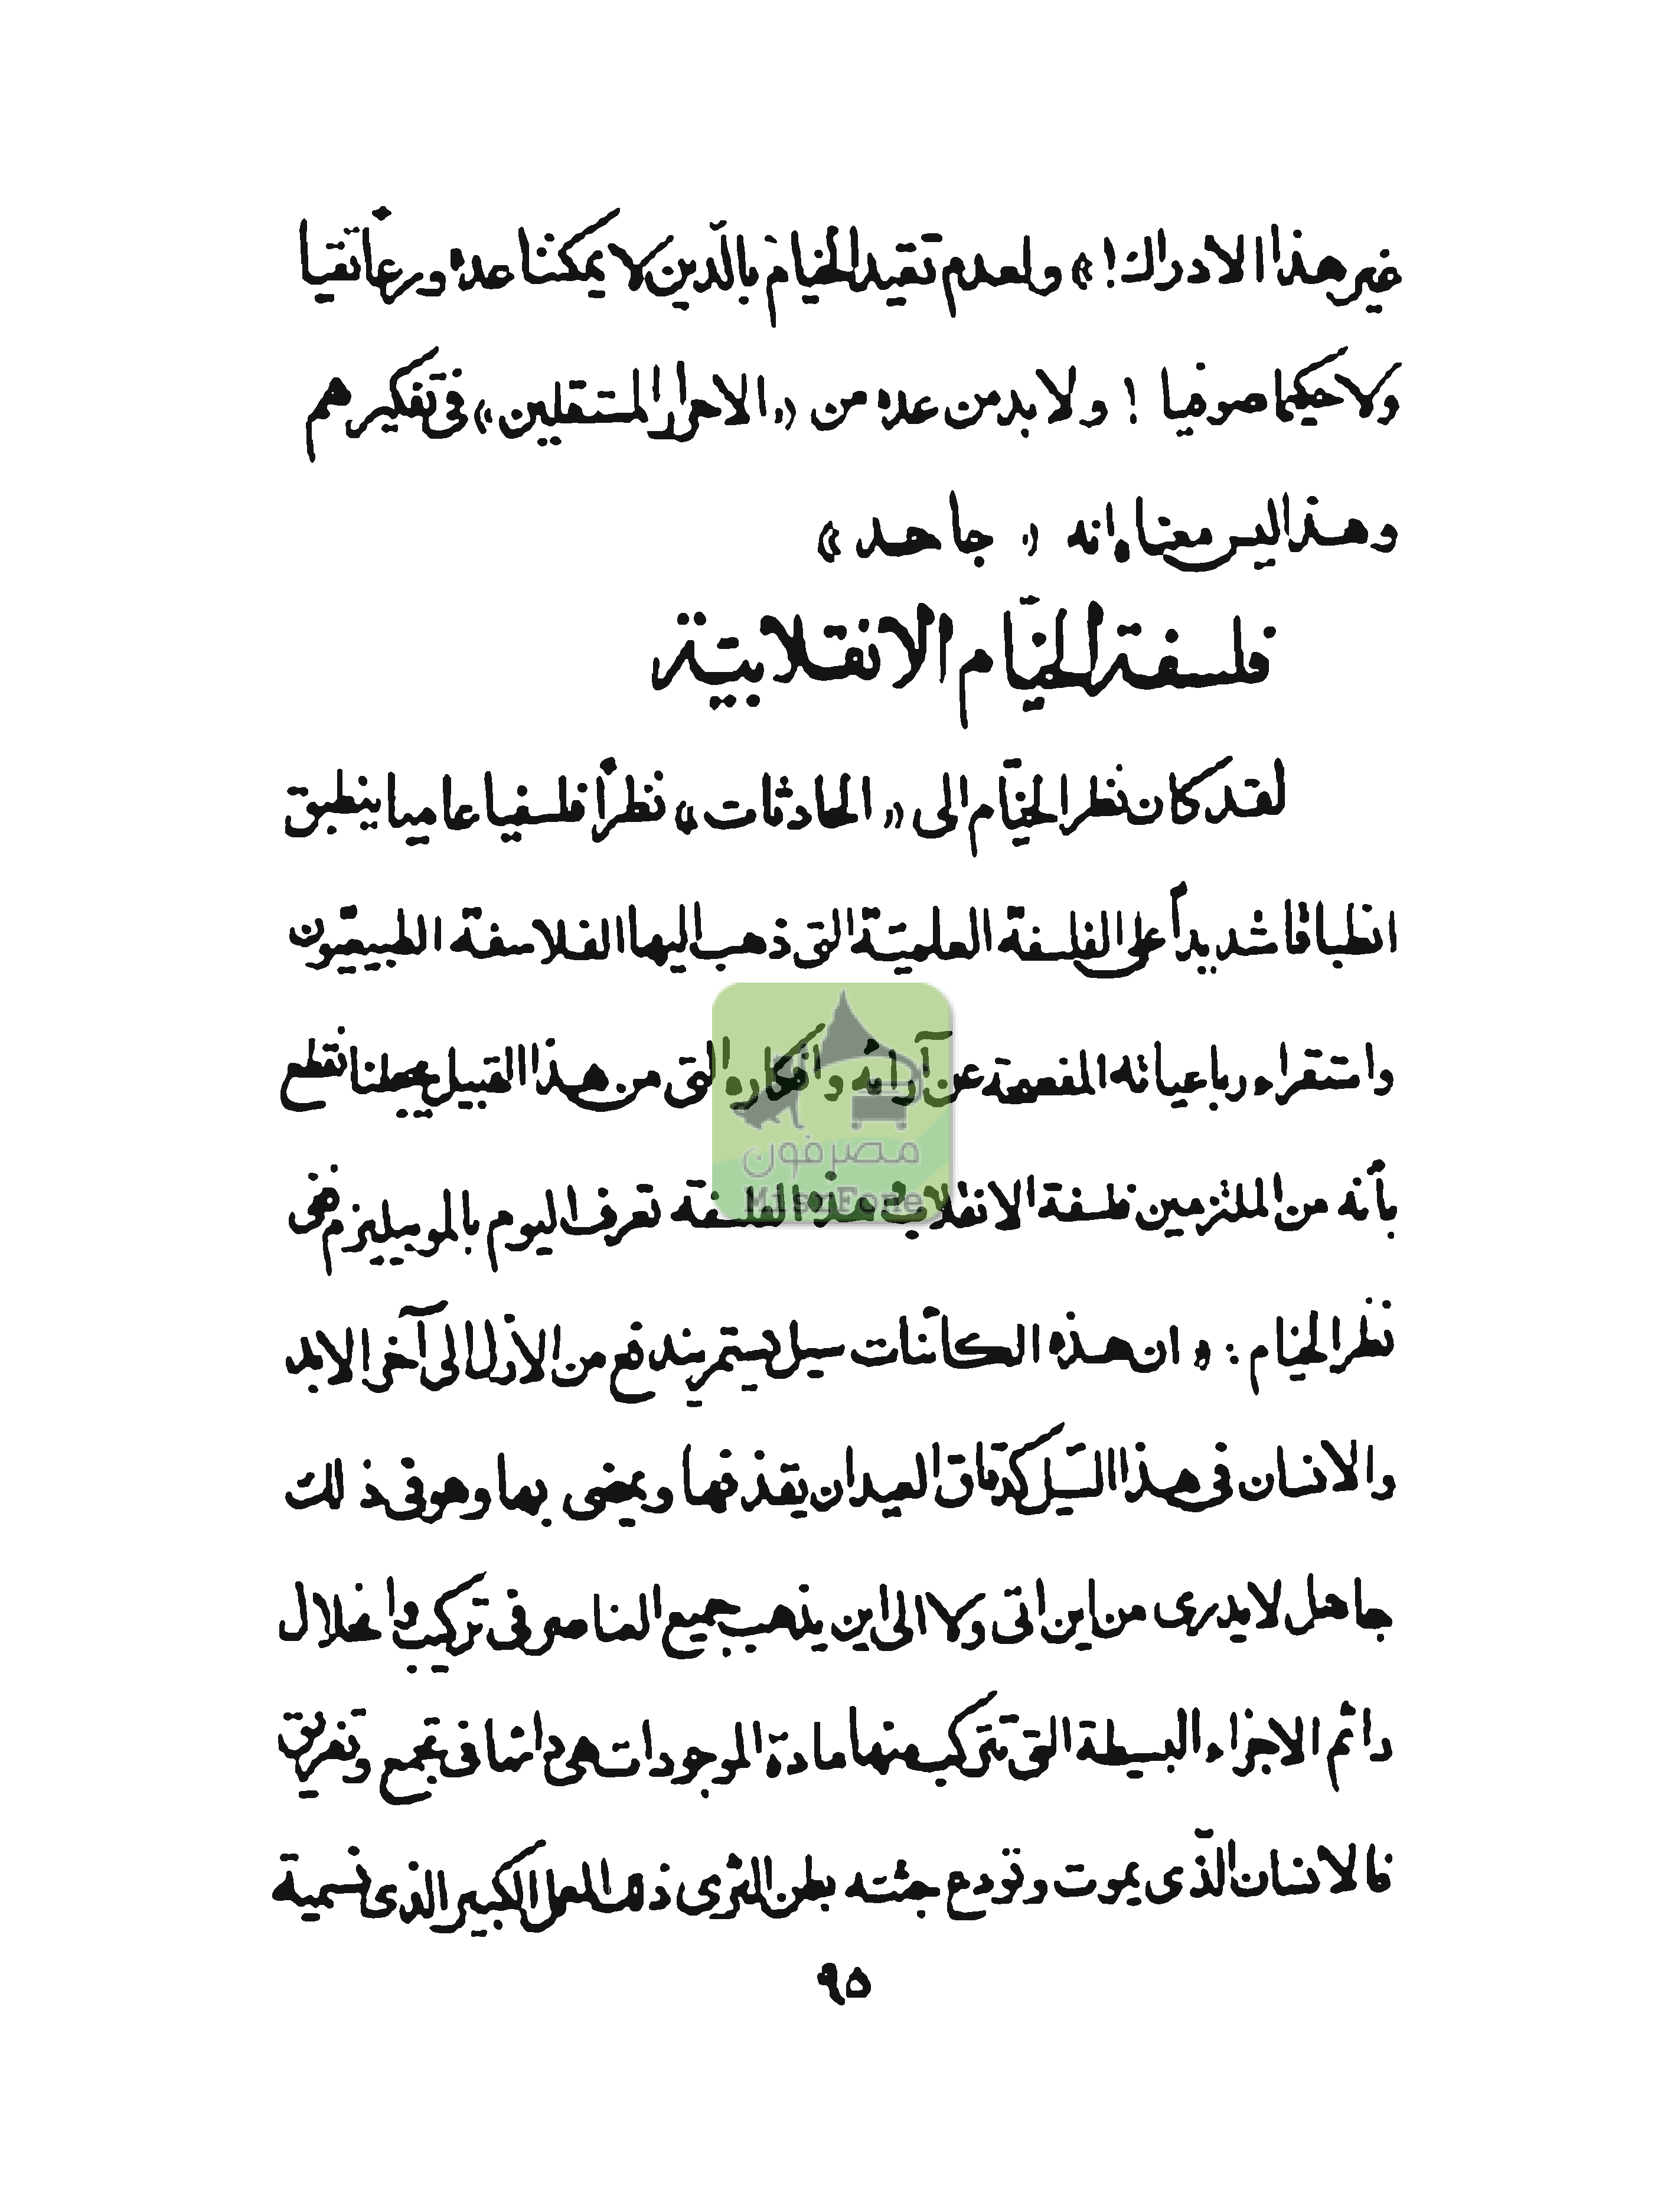 غير هذا الادراك! » ولعدم تقيد الخيام بالدّين لا يمكننا عده ورعاً تقيا
ولا حكيما صوفيا ! ولا بد من عده من « الاحرار المستقلين » فى تفكيرهم
وهذا ليس معناه انه « جاحد »
فلسفة الخيّام الانقلابيّة
لقد كان نظر الخيّام الى « الحادثات » نظراً فلسفيا عاميا ينطبق
انطباقا شديداً على الفلسفة العلميّة التى ذهب اليها الفلاسفة الطبيعيّون
واستقراء رباعياته المفصحة عن آرائه وأفكاره التى من هذا القبيل يجعلنا نقطع
بأنه من الملتزمين فلسفة الانقلاب هذه الفلسفة تعرف اليوم بالموبيليزم ففى
نظر الخيام : « ان هذه الكائنات سيل يستمر يندفع من الأزل الى آخر الابد
والانسان فى هذا السّيل كدقاق العيدان يقذفها ويمضى بها وهو فى ذلك
جاهل لا يدرى من اين اتى ولا الى اين يذهب جميع العناصر فى تركيب وانحلال
دائم الاجزاء البسيطة التى تتركب منها مادة الموجودات هى دائما فى تجمع وتفريق
فالانسان الّذى يموت وتودع جثته بطن الثرى ذلك المعمل الكبير الذى نسمية
٩٥
مصرفون
MisrFone